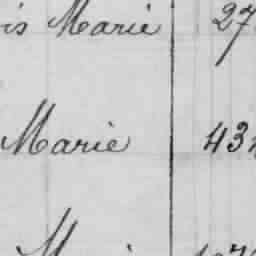 is Marie 27
Marie 43